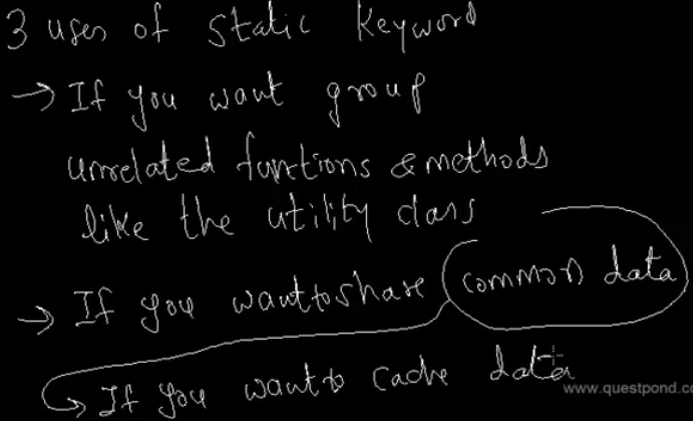 3 uses of static keyword
→ If you want group
unrelated functions & methods
like the utility class
→ If you want to share common data
→ If you want to cache data
www.questpond.co